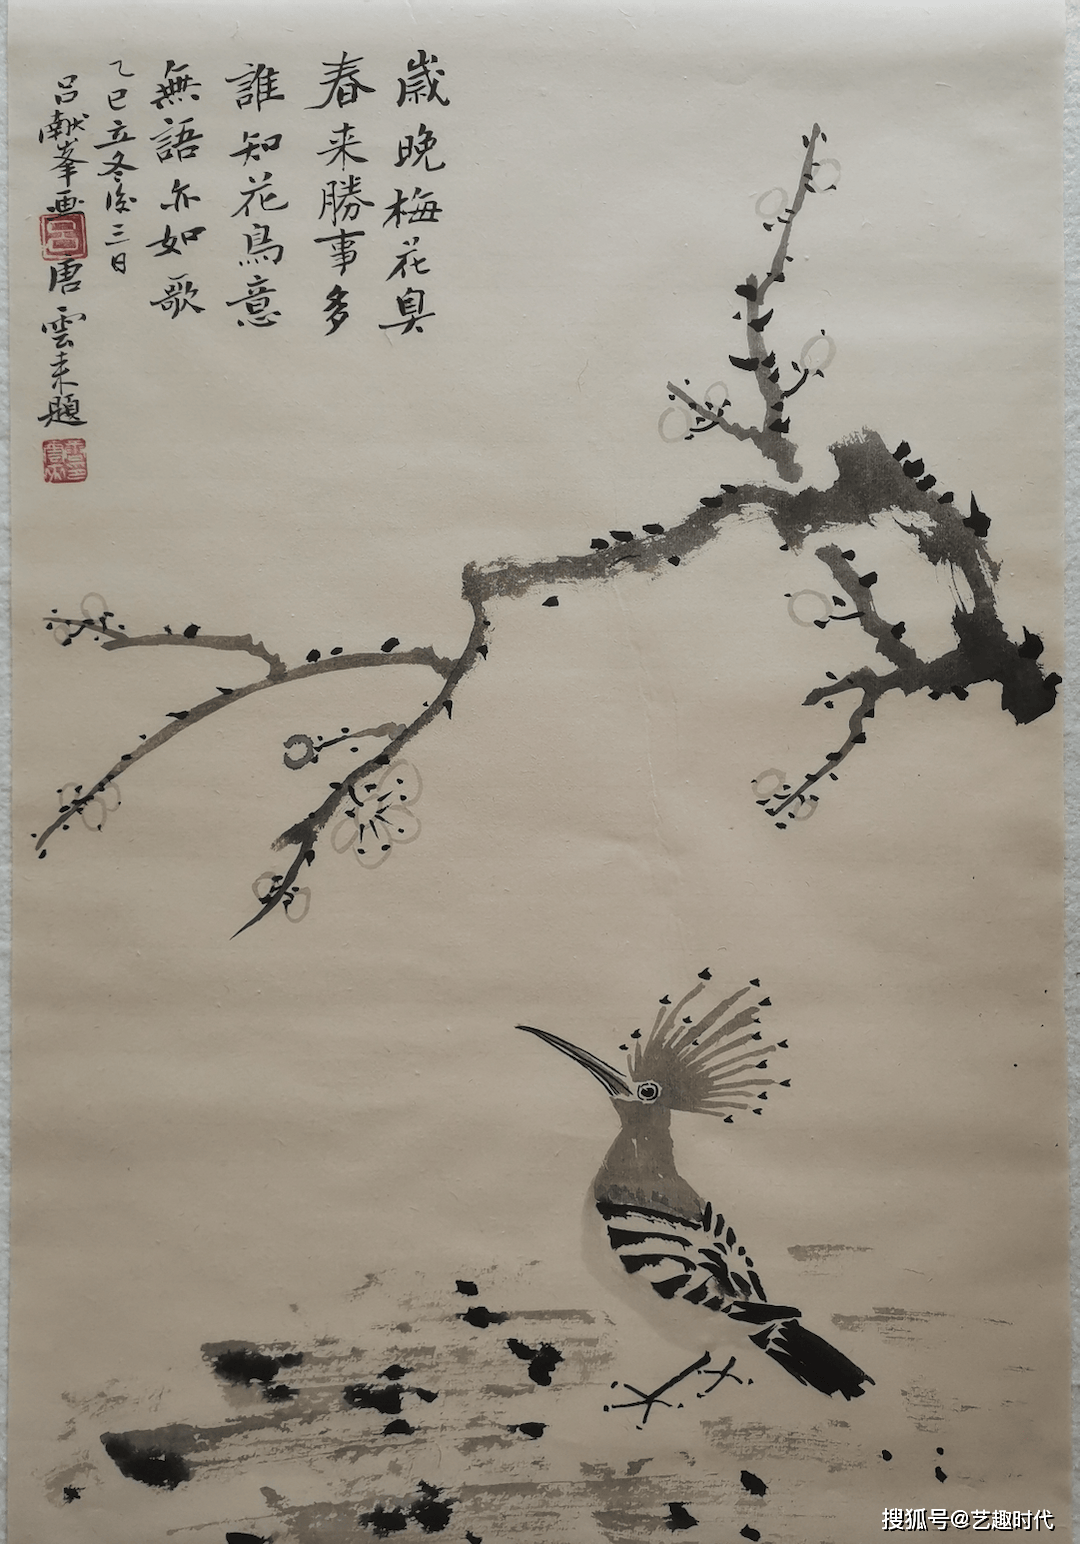 歲晚梅花臭
春来勝事多
誰知花鳥意
無語亦如歌
乙巳立冬後三日
吕献峯画
唐雲来題
搜狐号@艺趣时代